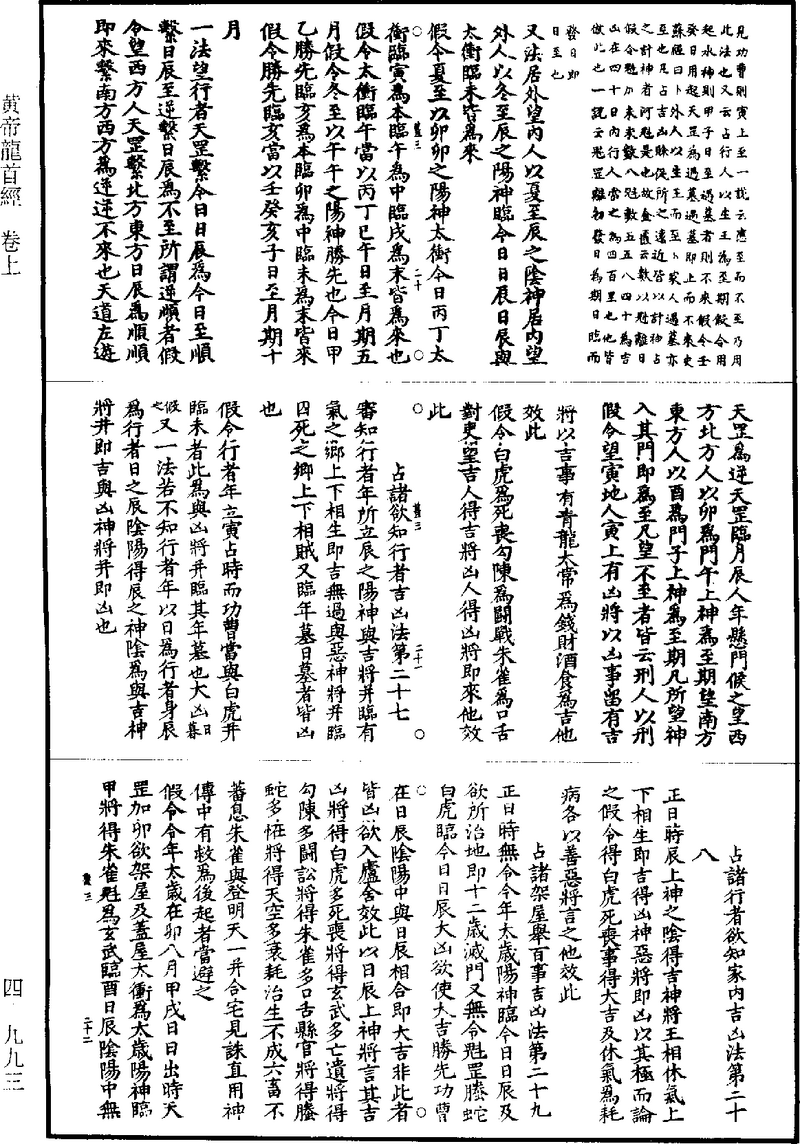 見功曹則寅上至一說云應至而不至乃用
此法也又云占行人以生王為至期假令用
起水神則甲子日至過墓者則不來假令壬
癸日用起天罡為過墓過墓即止而不來史
蘇經曰卜外人以生王而至卜家人過墓亦
至也凡占吉凶賒促所之遠近皆以計神占
之計神者河魁是也故金匱云數以魁離日
假令魁加未未數八魁數五五八四十為吉
凶在四十日內行人當之為四百里也他皆
倣此也一說云魁罡離初發日為期日臨而
發日即
日至也
又法居外望內人以夏至辰之陰神居內望
外人以冬至辰之陽神臨今日日辰日辰與
太衝臨未皆為來
假令夏至以卯卯之陽神太衝今日丙丁太
衝臨寅為本臨午為中臨戌為末皆為來也
假令太衝臨午當以丙丁巳午日至月期五
月假令冬至以午午之陽神勝先也今日甲
乙勝先臨亥為本臨卯為中臨未為末皆來
假令勝先臨亥當以壬癸亥子日至月期十
月
一法望行者天罡繫今日日辰為今日至順
繫日辰至逆繫日辰為不至所謂逆順者假
令望西方人天罡繫北方東方日辰為順順
即來繫南方西方為逆逆不來也天道左遊
黃帝龍首經 卷上
天罡為逆天罡臨月辰人年懸門候之望西
方北方人以卯為門午上神為至期望南方
東方人以酉為門子上神為至期凡所望神
入其門即為至凡望一不至者皆云刑人以刑
假令望寅地人寅上有凶將以凶事留有吉
將以吉事有青龍太常為錢財酒食為吉他
效此
假令白虎為死喪勾陳為鬭戰朱雀為口舌
對吏望吉人得吉將凶人得凶將即來他效
此
占諸欲知行者吉凶法第二十七
審知行者年所立辰之陽神與吉將并臨有
氣之鄉上下相生即吉無過與惡神將并臨
囚死之鄉上下相賊又臨年墓日墓者皆凶
也
假令行者年立寅占時而功曹當與白虎并
臨未者此為與凶將并臨其年墓也大凶日暮
假之又一法若不知行者年以日為行者身辰
為行者日之辰陰陽得辰之神陰為與吉神
將并即吉與凶神將并即凶也
占諸行者欲知家內吉凶法第二十
八
正日時辰上神之陰得吉神將王相休氣上
下相生即吉得凶神惡將即凶以其極而論
之假令得白虎死喪事得大吉及休氣為耗
病各以善惡將言之他效此
占諸架屋舉百事吉凶法第二十九
正日時無令今年太歲陽神臨今日日辰及
欲所治地即十二歲滅門又無令魁罡螣蛇
白虎臨今日日辰大凶欲使大吉勝先功曹
在日辰陰陽中與日辰相合即大吉非此者
皆凶欲入廬舍效此以日辰上神將言其吉
凶將得白虎多死喪將得玄武多亡遺將得
勾陳多鬭訟將得朱雀多口舌縣官將得螣
蛇多怪將得天空多衰耗治生不成六畜不
蕃息朱雀與登明天一并合宅見誅直用神
傳中有救為後起者當避之
假令今年太歲在卯八月甲戌日日出時天
罡加卯欲架屋及蓋屋太衝為太歲陽神臨
甲將得朱雀魁為玄武臨酉日辰陰陽中無
四 九九三